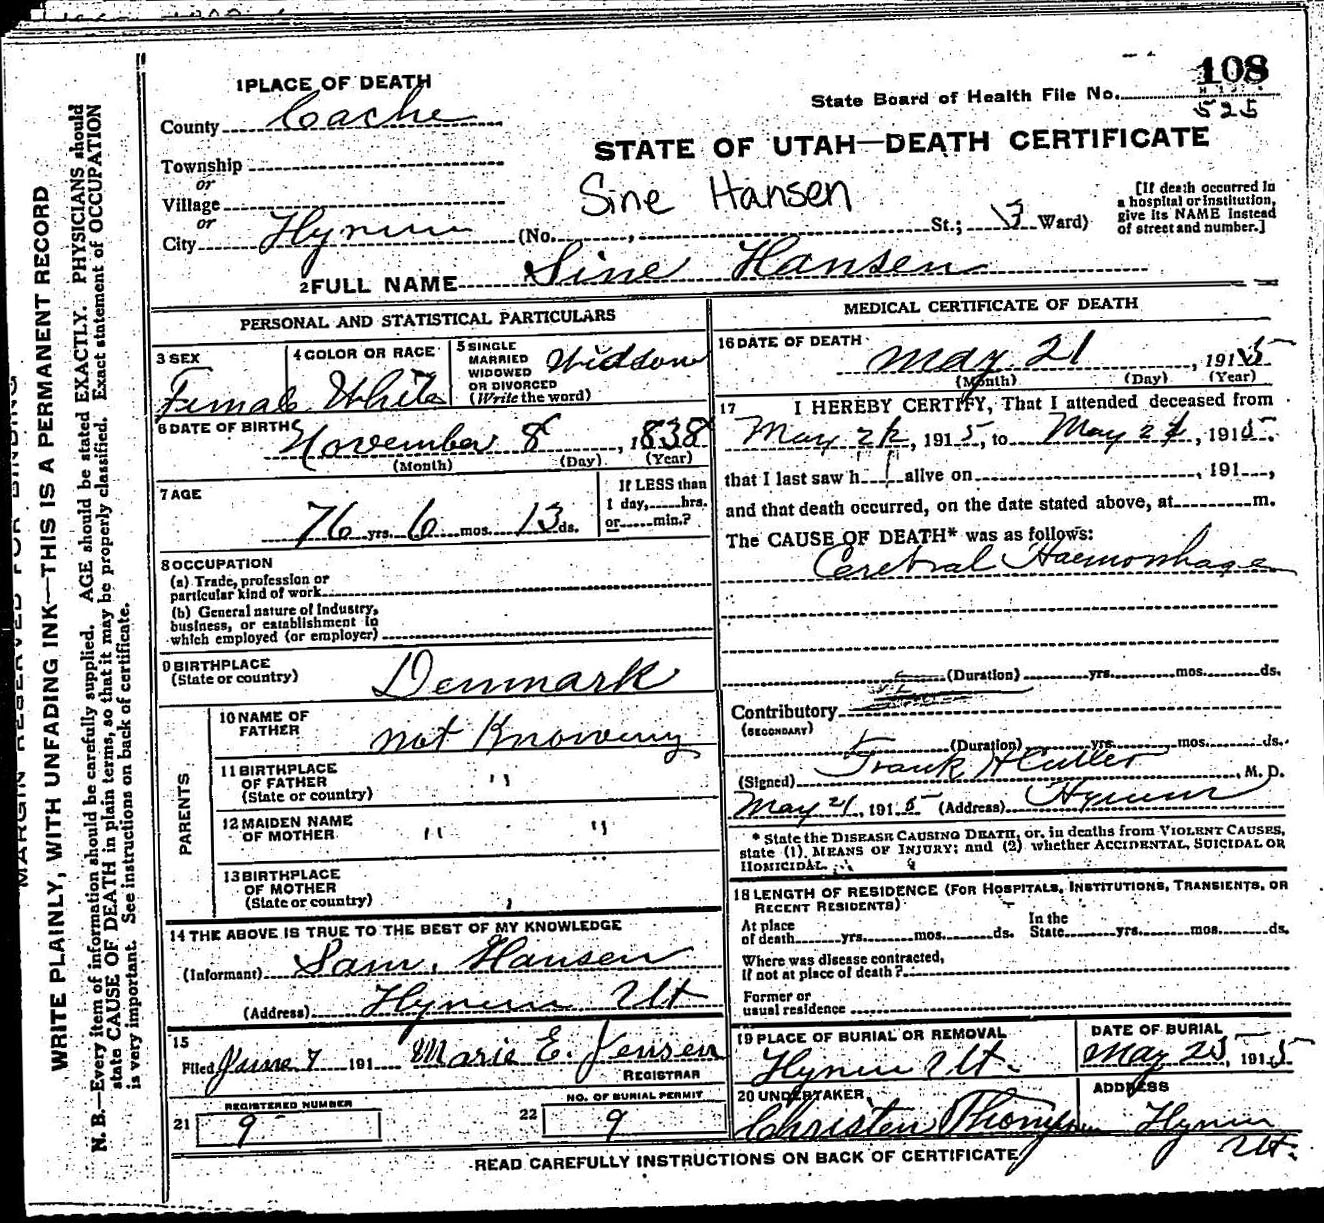 108
State Board of Health File No.
525
1 PLACE OF DEATH
County Cache
Township
or
Village
or
City Hyrum (No. , St.; 3 Ward)
STATE OF UTAH—DEATH CERTIFICATE
Sine Hansen
[If death occurred in
a hospital or institution,
give its NAME instead
of street and number.]
2 FULL NAME Sine Hansen
PERSONAL AND STATISTICAL PARTICULARS
3 SEX
Female
4 COLOR OR RACE
White
5 SINGLE
MARRIED
WIDOWED
OR DIVORCED
(Write the word)
Widdow
6 DATE OF BIRTH
November 8, 1838
(Month) (Day) (Year)
7 AGE
76 yrs. 6 mos. 13 ds.
If LESS than
1 day, hrs.
or min.?
8 OCCUPATION
(a) Trade, profession or
particular kind of work
(b) General nature of Industry,
business, or establishment in
which employed (or employer)
9 BIRTHPLACE
(State or country)
Denmark
PARENTS
10 NAME OF
FATHER
not Knowing
11 BIRTHPLACE
OF FATHER
(State or country)
"
12 MAIDEN NAME
OF MOTHER
" "
13 BIRTHPLACE
OF MOTHER
(State or country)
14 THE ABOVE IS TRUE TO THE BEST OF MY KNOWLEDGE
(Informant) Sam. Hansen
(Address) Hyrum Ut
15
Filed June 7 191 Marie E. Jensen
REGISTRAR
REGISTERED NUMBER
21 9
NO. OF BURIAL PERMIT
22 9
MEDICAL CERTIFICATE OF DEATH
16 DATE OF DEATH
May 21, 1915
(Month) (Day) (Year)
17 I HEREBY CERTIFY, That I attended deceased from
May , 1915, to May , 1915
that I last saw h alive on , 191 ,
and that death occurred, on the date stated above, at m.
The CAUSE OF DEATH* was as follows:
Cerebral Haemorrhage
(Duration) yrs. mos. ds.
Contributory
(SECONDARY)
(Duration) yrs. mos. ds.
(Signed) Frank H Cutler, M. D.
May 21, 1915 (Address) Hyrum
* State the DISEASE CAUSING DEATH, or, in deaths from VIOLENT CAUSES,
state (1) MEANS OF INJURY; and (2) whether ACCIDENTAL, SUICIDAL OR
HOMICIDAL.
18 LENGTH OF RESIDENCE (FOR HOSPITALS, INSTITUTIONS, TRANSIENTS, OR
RECENT RESIDENTS)
At place
of death yrs. mos. ds.
In the
State yrs. mos. ds.
Where was disease contracted,
if not at place of death?
Former or
usual residence
19 PLACE OF BURIAL OR REMOVAL
Hyrum Ut.
DATE OF BURIAL
May 23, 1915
20 UNDERTAKER
Christen
ADDRESS
Hyrum
Ut.
READ CAREFULLY INSTRUCTIONS ON BACK OF CERTIFICATE
MARGIN RESERVED FOR BINDING
WRITE PLAINLY, WITH UNFADING INK—THIS IS A PERMANENT RECORD
N. B.—Every item of information should be carefully supplied. AGE should be stated EXACTLY. PHYSICIANS should
state CAUSE OF DEATH in plain terms, so that it may be properly classified. Exact statement of OCCUPATION
is very important. See instructions on back of certificate.